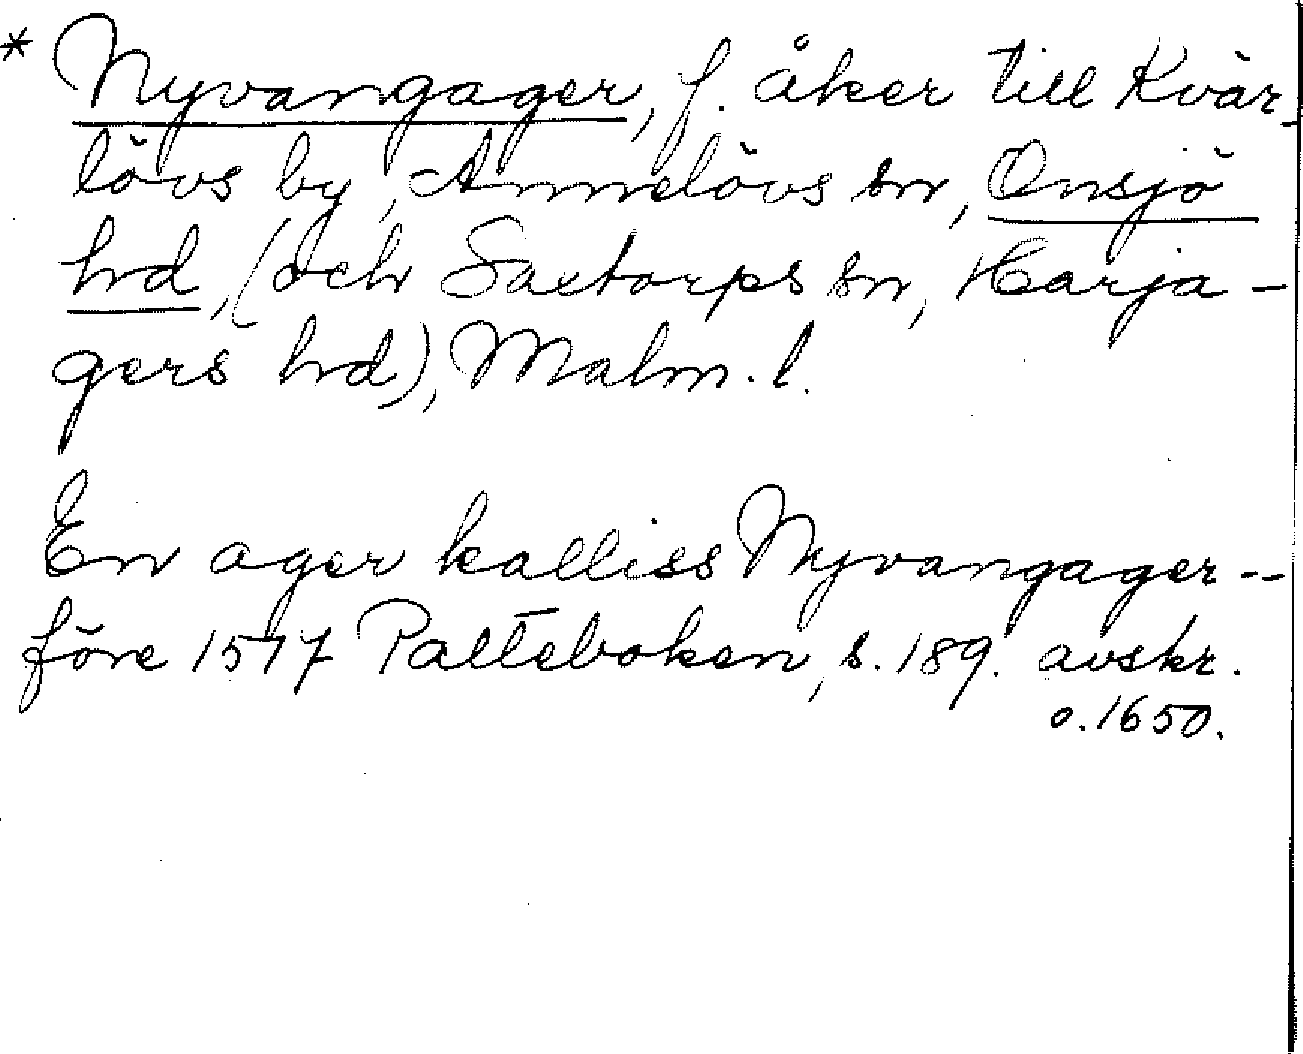 * Nyvangager, f. åker till Kvär-
lövs by, Annelövs sn, Onsjö
hrd, (och Saxtorps sn, Harja-
gers hrd), Malm. l.
En ager kalliss Nyvangager --
före 1517 Palteboken, s. 189. avskr.
o. 1650.